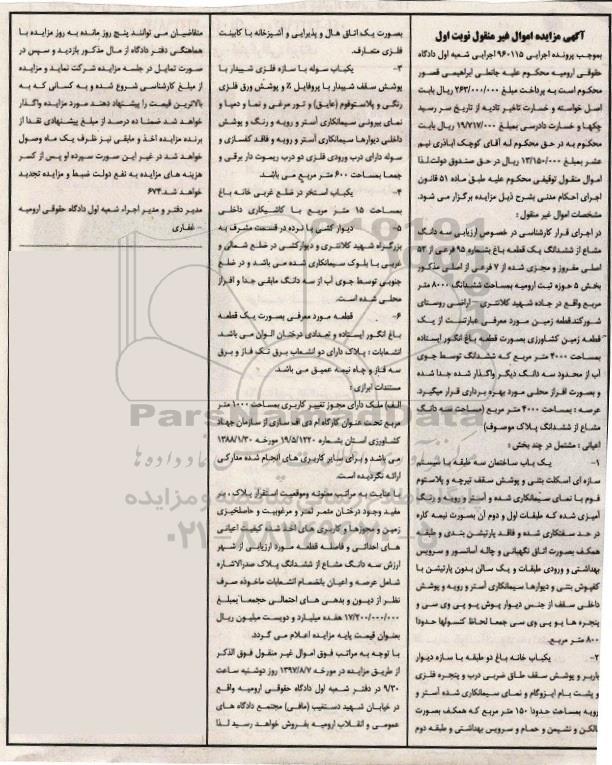 آگهی مزایده اموال غیر منقول نوبت اول
بموجب پرونده اجرایی ۹۶۰۱۱۵ اجرایی شعبه اول دادگاه
حقوقی ارومیه محکوم علیه جانعلی ابراهیمی قصور
محکوم است به پرداخت مبلغ ۲۶۳/۰۰۰/۰۰۰ ریال بابت
اصل خواسته و خسارت تاخیر تادیه از تاریخ سر رسید
چکها و خسارت دادرسی بمبلغ ۱۹/۷۱۷/۰۰۰ ریال بابت
محکوم به در حق محکوم له آقای کوچک اباذری نیم
عشر بمبلغ ۱۳/۱۵۰/۰۰۰ ریال در حق صندوق دولت لذا
اموال منقول توقیفی محکوم علیه طبق ماده ۵۱ قانون
اجرای احکام مدنی بشرح ذیل مزایده برگزار می شود.
مشخصات اموال غیر منقول :
در اجرای قرار کارشناسی در خصوص ارزیابی سه دانگ
مشاع از ششدانگ یک قطعه باغ بشماره ۹۵ فرعی از ۵۳
اصلی مفروز و مجزی شده از ۷ فرعی از اصلی مذکور
بخش ۵ حوزه ثبت ارومیه بمساحت ششدانگ ۸۰۰۰ متر
مربع واقع در جاده شهید کلانتری - اراضی روستای
شورکند.قطعه زمین مورد معرفی عبارتست از یک
قطعه زمین کشاورزی بصورت قطعه باغ انگور ایستاده
بمساحت ۴۰۰۰ متر مربع که ششدانگ توسط جوی
آب از محدود سه دانگ دیگر واگذار شده جدا شده
و بصورت افراز محلی مورد بهره برداری قرار میگیرد.
عرصه : بمساحت ۴۰۰۰ متر مربع (مساحت سه دانگ
مشاع از ششدانگ پلاک موصوف)
اعیانی : مشتمل در چند بخش :
۱- یک باب ساختمان سه طبقه با سیستم
سازه ای اسکلت بتنی و پوشش سقف تیرچه و پلاستو
فوم با نمای سیمانکاری شده و آستر و رویه و رنگ
آمیزی شده که طبقات اول و دوم آن بصورت نیمه کاره
در حد سفتکاری شده و فاقد پارتیشن بندی و طبقه
همکف بصورت اتاق نگهبانی و چاله آسانسور و سرویس
بهداشتی و ورودی طبقات و یک سالن بدون پارتیشن با
کفپوش بتنی و دیوارها سیمانکاری آستر و رویه و پوشش
داخلی سقف از جنس دیوار پوش یو پی وی سی و
پنجره ها یو پی وی سی جمعا لحاظ کنسولها حدودا
۸۰۰ متر مربع.
۲- یکباب خانه باغ دو طبقه با سازه دیوار
باربر و پوشش سقف طاق ضربی درب و پنجره فلزی
و پشت بام ایزوگام و نمای سیمانکاری شده آستر و
رویه بمساحت حدودا ۱۵۰ متر مربع که همکف بصورت
بالکن و نشیمن و حمام و سرویس بهداشتی و طبقه دوم
بصورت یک اتاق هال و پذیرایی و آشپزخانه با کابینت
فلزی متعارف.
۳- یکباب سوله با سازه فلزی شیبدار با
پوشش سقف شیبدار با پروفایل Z و پوشش ورق فلزی
رنگی و پلاستوفوم (عایق) و تور مرغی و نما و دمپا و
نمای بیرونی سیمانکاری آستر و رویه و رنگ و پوشش
داخلی دیوارها سیمانکاری آستر و رویه و فاقد کفسازی و
سوله دارای درب ورودی فلزی دو درب ریموت دار برقی و
جمعا بمساحت ۶۰۰ متر مربع می باشد.
۴- یکباب استخر در ضلع غربی خانه باغ
بمساحت ۱۵ متر مربع با کاشیکاری داخلی
۵- دیوار کشی با نرده در قسمت مشرف به
بزرگراه شهید کلانتری و دیوارکشی در ضلع شمالی و
غربی با بلوک سیمانکاری شده می باشد و در ضلع
جنوبی توسط جوی آب از سه دانگ مابقی جدا و افراز
محلی شده است.
۶- قطعه مورد معرفی بصورت یک قطعه
باغ انگور ایستاده و تعدادی درختان الوان می باشد.
انشعابات : پلاک دارای دو انشعاب برق تک فاز و برق
سه فاز و چاه نیمه عمیق می باشد.
مستندات ابرازی :
الف) ملک دارای مجوز تغییر کاربری بمساحت ۱۰۰۰ متر
مربع تحت عنوان کارگاه ام دی اف سازی از سازمان جهاد
کشاورزی استان بشماره ۱۹/۵/۱۲۲۰ مورخه ۱۳۸۸/۱/۳۰
می باشد و برای سایر کاربری های انجام شده مدارکی
ارائه نگردیده است.
با عنایت به مراتب معنونه وموقعیت استقرار پلاک ، به
مفید وجود درختان مثمر ثمر و مرغوبیت و حاصلخیزی
زمین و مجوزها و کاربری های اخذ شده کیفیت اعیانی
های احداثی و فاصله قطعه مورد ارزیابی از شهر
ارزش سه دانگ مشاع از ششدانگ پلاک صدرالاشاره
شامل عرصه و اعیان بانضمام انشعابات ماخوذه صرف
نظر از دیون و بدهی های احتمالی جمعما بمبلغ
۱۷/۲۰۰/۰۰۰/۰۰۰ هفده میلیارد و دویست میلیون ریال
بعنوان قیمت پایه مزایده اعلام می گردد.
با توجه به مراتب فوق اموال غیر منقول فوق الذکر
از طریق مزایده در مورخه ۱۳۹۷/۸/۷ روز دوشنبه ساعت
۹/۳۰ در دفتر شعبه اول دادگاه حقوقی ارومیه واقع
در خیابان شهید دستغیب (مافی) مجتمع دادگاه های
عمومی و انقلاب ارومیه بفروش خواهد رسید لذا
متقاضیان می توانند پنج روز مانده به روز مزایده با
هماهنگی دفتر دادگاه از مال مذکور بازدید و سپس در
صورت تمایل در جلسه مزایده شرکت نماید و مزایده
از مبلغ کارشناسی شروع شده و به کسانی که به
بالاترین قیمت را پیشنهاد دهند مورد مزایده واگذار
خواهد شد ضمنا ده درصد از مبلغ پیشنهادی نقدا از
برنده مزایده اخذ و مابقی نیز ظرف یک ماه وصول
خواهد شد در غیر این صورت سپرده او پس از کسر
هزینه های مزایده به نفع دولت ضبط و مزایده تجدید
خواهد شد.۶۷۴
مدیر دفتر و مدیر اجراء شعبه اول دادگاه حقوقی ارومیه
- غفاری
ParsNamadData
۰۲۱-۸۸۳۴۹۶۷۰-۵